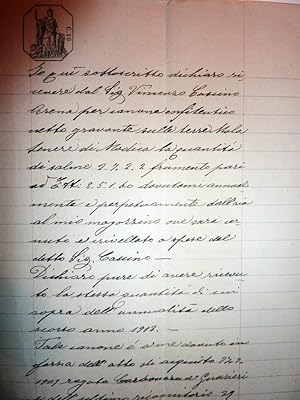 Io qui sottoscritto dichiaro ri
cevere dal Sig Vincenzo Cascino
Arena per canone enfiteutico
netto gravante sulle terre Mola
tenere di Modica la quantità
di salme 2.7.2.2 frumento pari
ad Ett. 8.5.1.60 dovutami annual
mente e perpetuamente dall'aia
al mio magazzino ove sarà ve
nuto e crivellato a spese del
detto Sig. Cascino —
Dichiaro pure di avere ricevu
to la stessa quantità di cui
sopra dell'annualità dello
scorso anno 1918. —
Tale canone è a me dovuto in
forza dell'atto di acquisto
1907, rogato Carbonaro da
e dell'ultimo 29